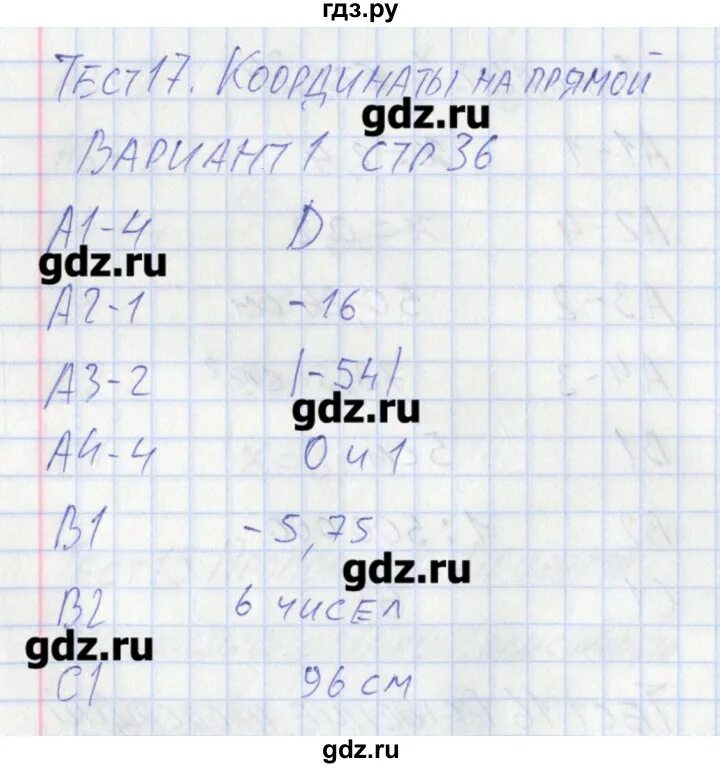 гдз.ру
ТЕСТ 17. КООРДИНАТЫ НА ПРЯМОЙ
gdz.ru
ВАРИАНТ 1 СТР 36
А1-4 D
gdz.ru
А2-1 -16
А3-2 |-54|
gdz.ru
А4-4 0 и 1
В1 -5,75
gdz.ru
В2 6 ЧИСЕЛ
gdz.ru
С1 96 см
gdz.ru